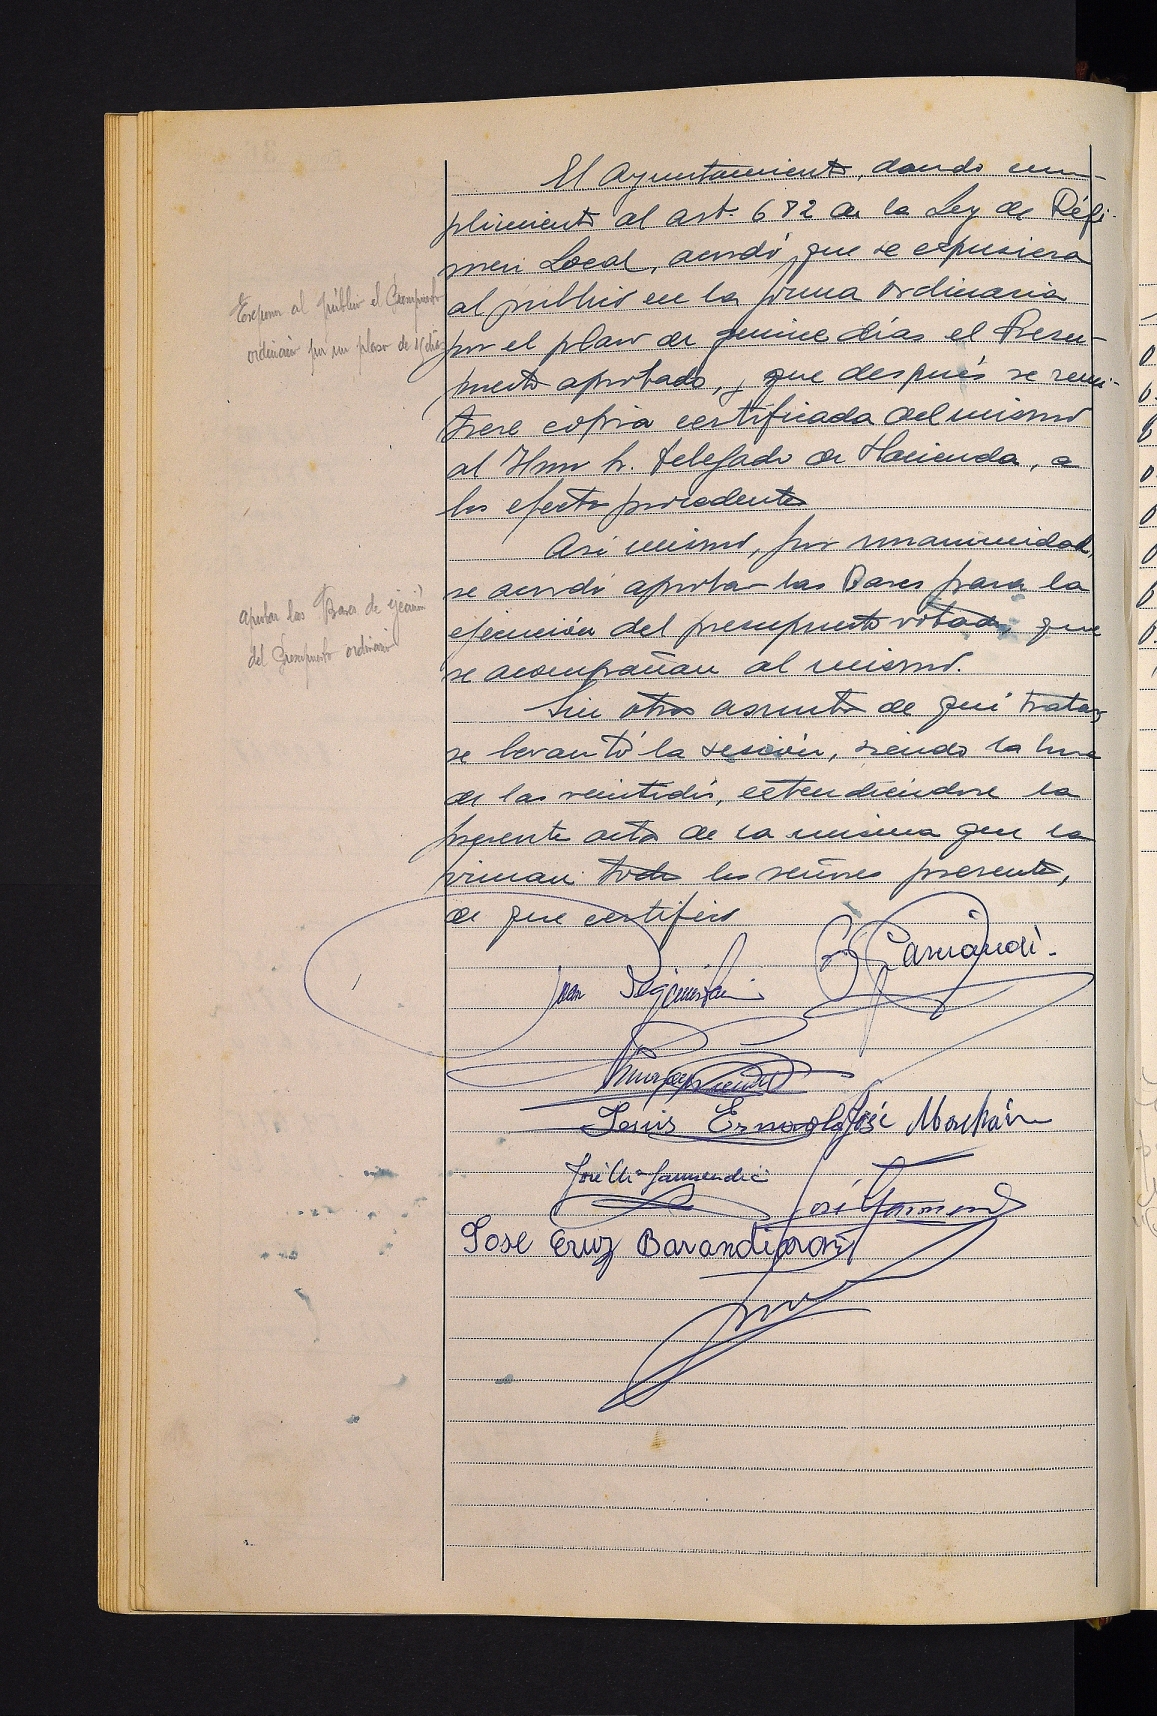 El Ayuntamiento, dando cum-
plimiento al art. 682 de la Ley de Régi-
men Local, acordó que se expusiera
al público en la forma ordinaria
por el plazo de quince días el Presu-
puesto aprobado, y que después se remi-
tiese copia certificada del mismo
al Ilmo Sr. Delegado de Hacienda, a
los efectos procedentes
Así mismo, por unanimidad,
se acordó aprobar las Bases para la
ejecución del presupuesto votado, que
se acompañan al mismo.
Sin otros asuntos de qué tratar,
se levantó la sesión, siendo la hora
de las veintidós, extendiéndose la
presente acta de la misma que la
firman todos los señores presentes,
de que certifico
Exponer al público el Presupuesto
ordinario por un plazo de 15 días
Aprobar las Bases de ejecución
del Presupuesto ordinario
Juan
Luis José
José Mª Garmendia
José
Jose Cruz Barandiaran